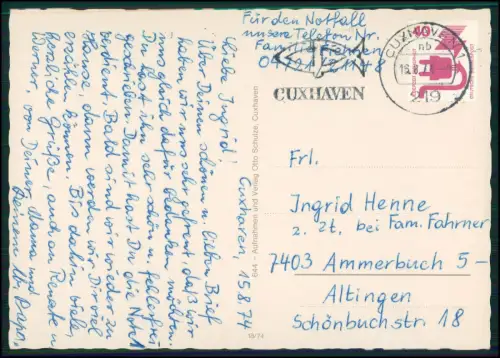 Cuxhaven, 15.8.74
Liebe Ingrid!
Über Deinen schönen u. lieben Brief
haben wir uns sehr gefreut, daß wir
uns gleich dafür bedanken möchten.
Du hast ihn sehr schön u. fehlerfrei
geschrieben. Damit hast Du die Note 1
verdient. Bald sind wir wieder zu
Hause, dann werden wir Dir viel
erzählen können. Bis dahin viele,
herzliche Grüße, auch an Renate u.
Werner, von Deiner Mama und
Deinem Papa.
Für den Notfall
unsere Telefon Nr.
Familie
CUXHAVEN
CUXHAVEN 1
mb
219
40
644 - Aufnahmen und Verlag Otto Schulze, Cuxhaven
13/74
Frl.
Ingrid Henne
z. Zt. bei Fam. Fahrner
7403 Ammerbuch 5 -
Altingen
Schönbuchstr. 18